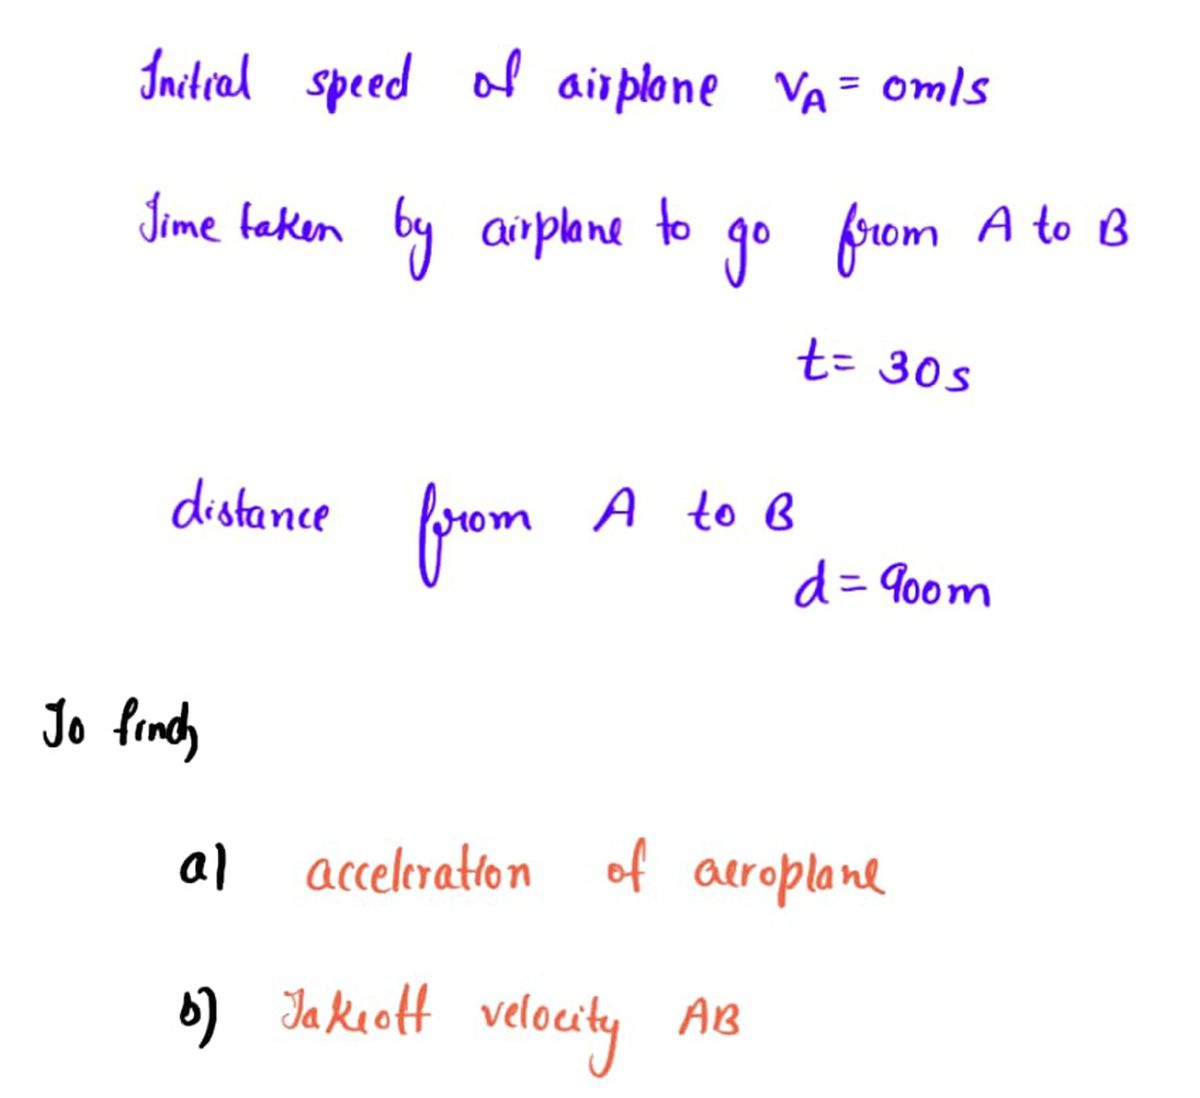 Initial speed of airplane VA = 0m/s
Time taken by airplane to go from A to B
t= 30s
distance from A to B
d = 900m
To find,
a) acceleration of aeroplane
b) Takeoff velocity AB